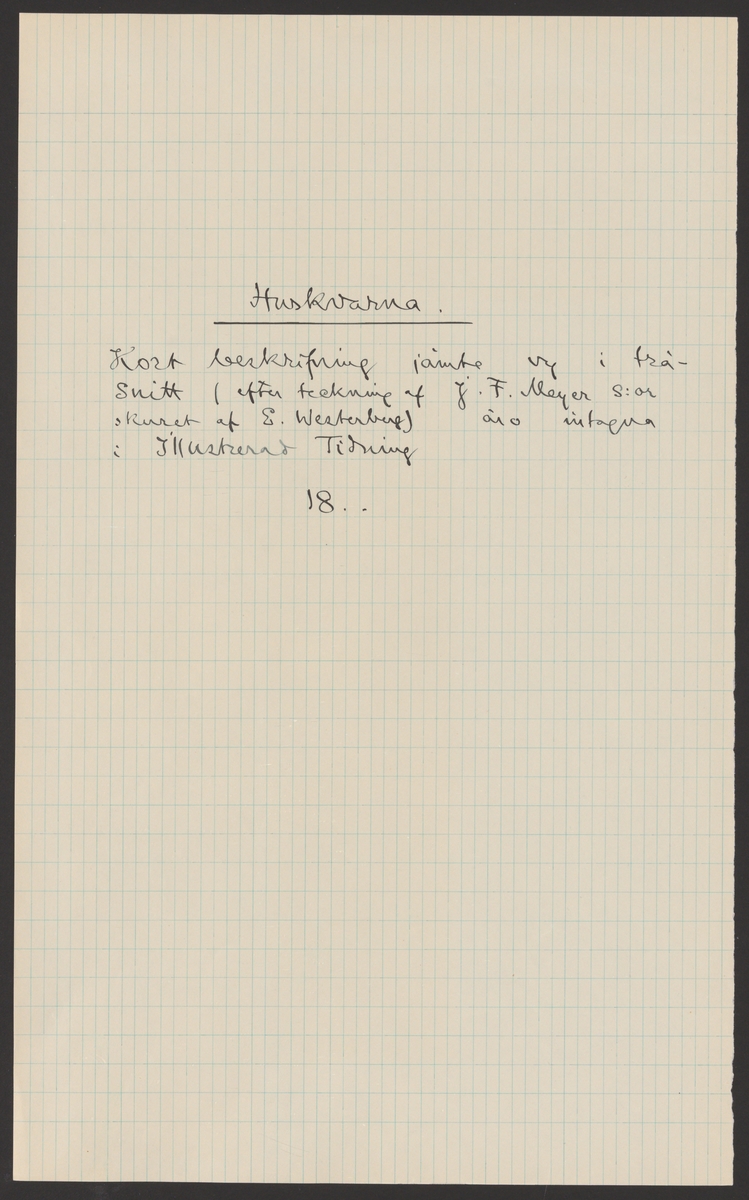 Huskvarna.
Kort beskrifning jämte vy i trä-
snitt (efter teckning af J. F. Meyer s:or
skuret af E. Westerberg) äro intagna
i Illustrerad Tidning
18. .